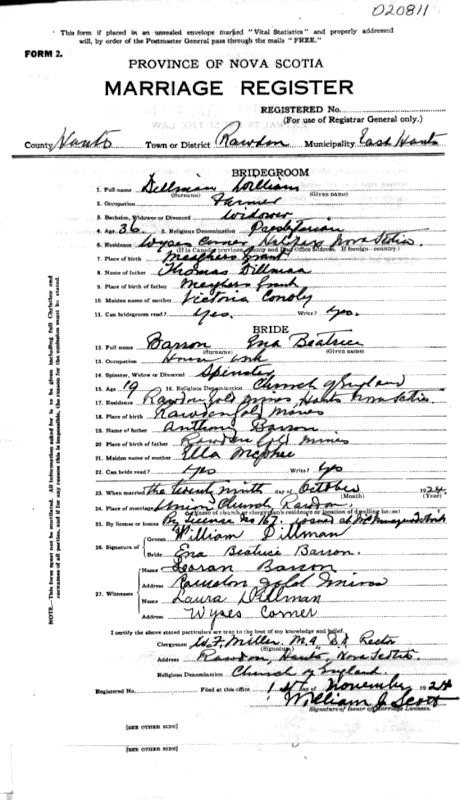 020811
This form if placed in an unsealed envelope marked "Vital Statistics" and properly addressed
will, by order of the Postmaster General pass through the mails "FREE."
FORM 2.
PROVINCE OF NOVA SCOTIA
MARRIAGE REGISTER
REGISTERED No.
(For use of Registrar General only.)
County Hants Town or District Rawdon Municipality East Hants
BRIDEGROOM
1. Full name Dillman William
(Surname) (Given name)
2. Occupation Farmer
3. Bachelor, Widower or Divorced Widower
4. Age 36 5. Religious Denomination Presbyterian
6. Residence Wyses Corner Halifax Nova Scotia
7. Place of birth Meaghers Grant
8. Name of father Thomas Dillman
9. Place of birth of father Meaghers Grant
10. Maiden name of mother Victoria
11. Can bridegroom read? Yes. Write? Yes.
BRIDE
12. Full name Barron Ena Beatrice
(Surname) (Given name)
13. Occupation House work
14. Spinster, Widow or Divorced Spinster
15. Age 19 16. Religious Denomination Church of England
17. Residence Rawdon Gold Mines Hants Nova Scotia
18. Place of birth Rawdon Gold Mines
19. Name of father Anthony Barron
20. Place of birth of father Rawdon Gold Mines
21. Maiden name of mother Ella McPhee
22. Can bride read? Yes Write? Yes
23. When married the twenty ninth day of October 1924
(Month) (Year)
24. Place of marriage Union Church Rawdon.
(Name of church or clergyman's residence or location of dwelling house)
25. By license or banns By license No 167. issued at
26. Signature of Groom William Dillman
Bride Ena Beatrice Barron.
27. Witnesses Name Barron
Address Rawdon Gold Mines
Name Laura Dillman
Address Wyses Corner
I certify the above stated particulars are true to the best of my knowledge and belief.
Clergyman W. F. Miller, M.A. B.D. Rector
(Signature)
Address Rawdon, Hants, Nova Scotia.
Religious Denomination Church of England.
Registered No. Filed at this office 1st day of November 1924
William J. Scott
Signature of Issuer of Marriage Licenses.
[SEE OTHER SIDE]
[SEE OTHER SIDE]
NOTE.—This form must not be mutilated. All information asked for is to be given including full Christian and
surnames of all parties, and if for any reason this is impossible, the reason for the omission must be stated.